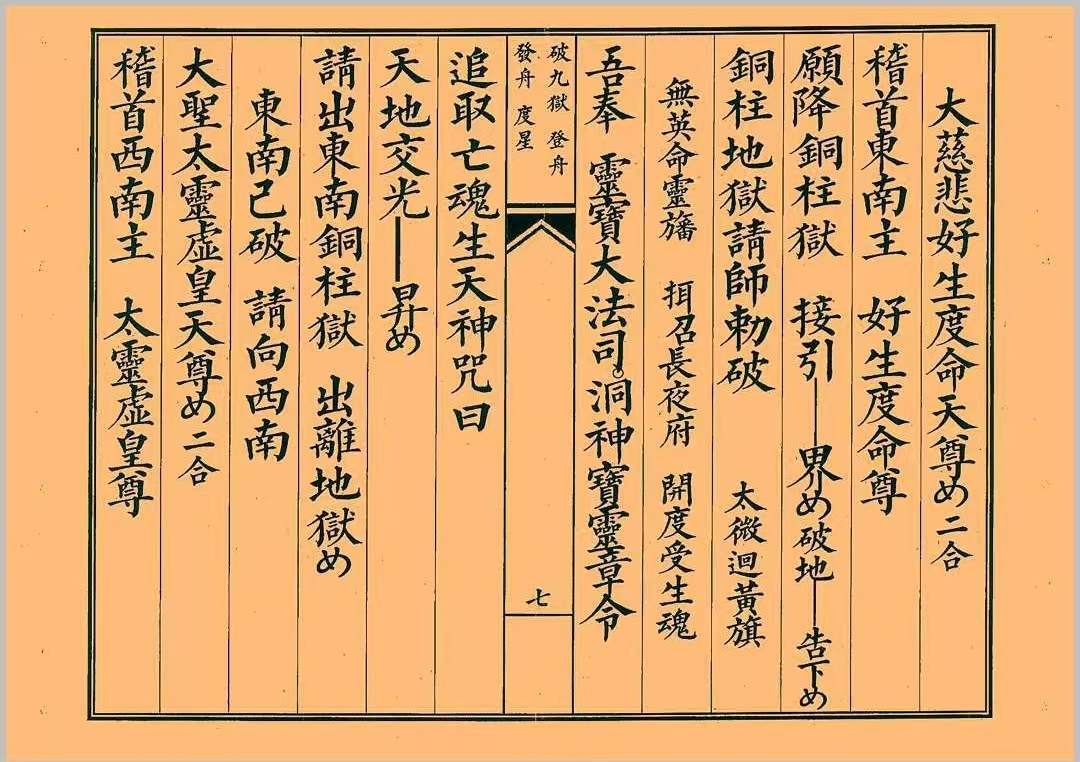 大慈悲好生度命天尊め二合
稽首東南主　好生度命尊
願降銅柱獄　接引｜界め破地｜告下め
銅柱地獄請師勅破　太微迴黃旗
無英命靈旛　揖召長夜府　開度受生魂
吾奉　靈寶大法司。洞神寶靈章令
破九獄　登舟
發舟　度星
七
追取亡魂生天神咒曰
天地交光｜昇め
請出東南銅柱獄　出離地獄め
東南已破　請向西南
大聖太靈虛皇天尊め二合
稽首西南主　太靈虛皇尊